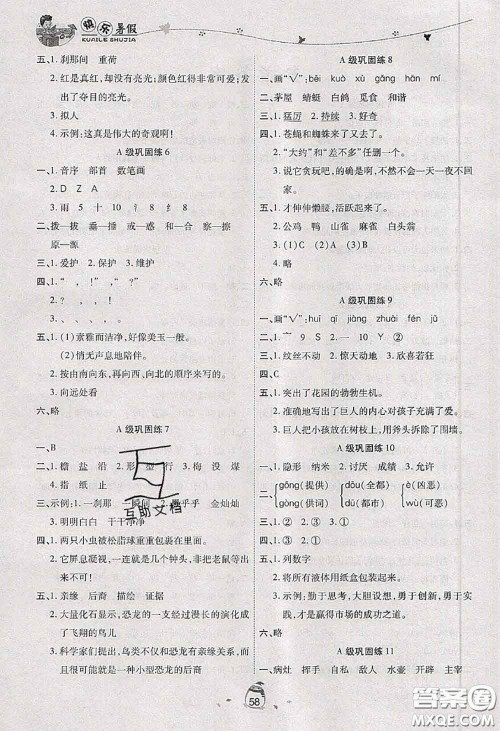 快乐暑假
KUAILE SHUJIA
五、1. 刹那间 重荷
2. 红是真红,却没有亮光;颜色红得出
奇,但是发不出亮光,这是太阳升起之
前夺目的亮光。
3. 拟人
4. 示例:这真是伟大的奇观啊!
A 级巩固练 6
一、1. 音序 部首 数笔画
2. D Z A
3. 雨 5 十 10 讠 8 彳 9
二、拔—拨 垂—捶 或—成 察—擦
原—源
三、1. 爱护 2. 保护 3. 维护
四、1. “ , ! ” , “ ”
2. ? 。
3. 、 、 、 。
五、1. (1)素雅而洁净,好像美玉一般。
(2)悄无声息地陪伴。
2. 按由南向东,再向西,向北的顺序写的。
3. 向远处看
六、略
A 级巩固练 7
一、B
二、1. 檐 盐 沿 2. 形 型 行 3. 梅 没 煤
4. 指 纸 止
三、示例:1. 一刹那 一瞬间 2. 乎乎 金灿灿
3. 明明白白 干干净净
四、1. 两只小虫被松脂球重重包裹在里面。
2. 它屏息凝视,一连就是几个钟头,非把老鼠等出来
不可。
五、1. 亲缘 后裔 描绘 证据
2. 大量化石显示,恐龙的一支经过漫长的演化成
了飞翔的鸟儿
3. 科学家们提出,鸟类不仅和恐龙有亲缘关系,而
且很可能就是一种小型恐龙的后裔
A 级巩固练 8
一、画“√”:bēi kuò xù gāng hàn mí
二、茅屋 蜻蜓 白鹤 觅食 和谐
三、1. 猛厉 2. 持续 3. 好奇
四、1. 苍蝇和蜘蛛来来去去了。
2. “大约”和“差不多”任删一个。
3. 说它贪玩吧,的确是呀,不然怎么会一天一夜不
回家呢?
五、1. 才伸伸懒腰,活跃起来了。
2. (1)公鸡 (2)鸭 山雀 麻雀 母鸡 白头翁
3. (1)C (2)A
4. 略
六、略
A 级巩固练 9
一、画“√”:huī qī jiàng zhuài fén jǔ
二、1. ⌒ 9 S 2. 一 10 Y ② ②
三、1. 纹丝不动 2. 惊天动地 3. 欣喜若狂
四、略
五、1. 突出了花园的勃勃生机。
2. 准确地写出了巨人的内心对孩子充满了爱。
3. 巨人把小孩放在树枝上,用斧头拆除了围墙。
A 级巩固练 10
一、1. 隐形 纳米 2. 讨厌 成绩 3. 允许
二、gōng(提供) dōu(都是) è(凶恶)
gòng(供词) dū(都市) wù(可恶)
三、1. ② 2. ③ 3. ①
四、1. ① 2. ③ 3. ①
五、1. 列数字
2. 将所有液体用纸盒包装起来。
3. 示例:我从中感悟到,大胆设想与开拓创
新,是赢得市场的成功之道。
六、略
A 级巩固练 11
一、病灶 挥手 自私 敌人 水壶 开辟 主宰
58
互助文档
答案圈
MXQE.COM